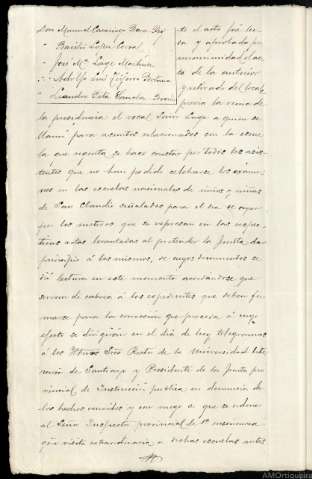 Don Manuel
" Basilio López
" José Mª Lage
" Adolfo
" Leandro Pita
to el acto fué lei-
da y aprobada por
unanimidad el ac-
ta de la anterior
y retirado del local
previa la venia de
la presidencia el vocal Señor Lage a quien se
llamó para asuntos relacionados con la escue-
la que regenta, se hace constar por todos los asis-
tentes que no han podido celebrarse los exáme-
nes en las escuelas nacionales de niños y niñas
de San Claudio señalados para el dia de ayer
por los motivos que se expresan en las respec-
tivas actas levantadas al pretender la Junta dar
principio á los mismos, de cuyos documentos se
dió lectura en este momento acordandose que
sirvan de cabeza á los expedientes que deben for-
marse para la corrección que proceda á cuyo
efecto se dirigirán en el día de hoy telegramas
á los Iltmos Sres Rector de la Universidad lite-
raria de Santiago y Presidente de la Junta pro-
vincial de Instrucción publica en denuncia de
los hechos ocurridos y con ruego a que se ordene
al Señor Inspector provincial de 1ª enseñanza
gire visita extraordinaria a dichas escuelas antes
AMOrtigueira